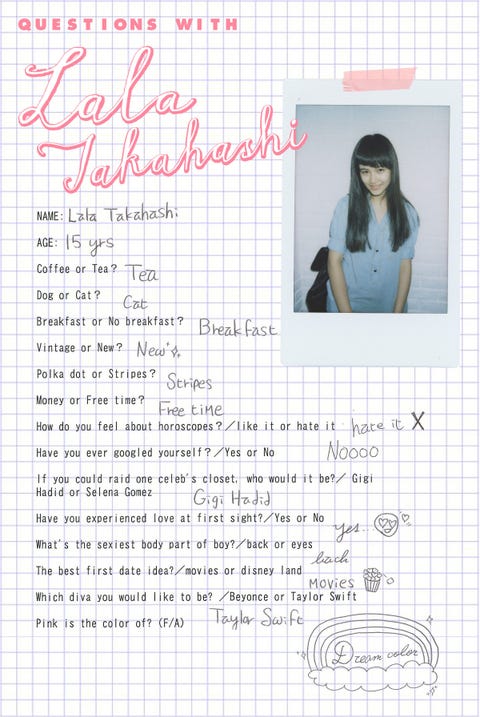 QUESTIONS WITH
Lala
Takahashi
NAME: Lala Takahashi
AGE: 15 yrs
Coffee or Tea? Tea
Dog or Cat? Cat
Breakfast or No breakfast? Breakfast
Vintage or New? New
Polka dot or Stripes? Stripes
Money or Free time? Free time
How do you feel about horoscopes?/like it or hate it hate it X
Have you ever googled yourself?/Yes or No Noooo
If you could raid one celeb's closet, who would it be?/ Gigi
Hadid or Selena Gomez Gigi Hadid
Have you experienced love at first sight?/Yes or No yes..
What's the sexiest body part of boy?/back or eyes back
The best first date idea?/movies or disney land movies
Which diva you would like to be? /Beyonce or Taylor Swift
Taylor Swift
Pink is the color of? (F/A) Dream color